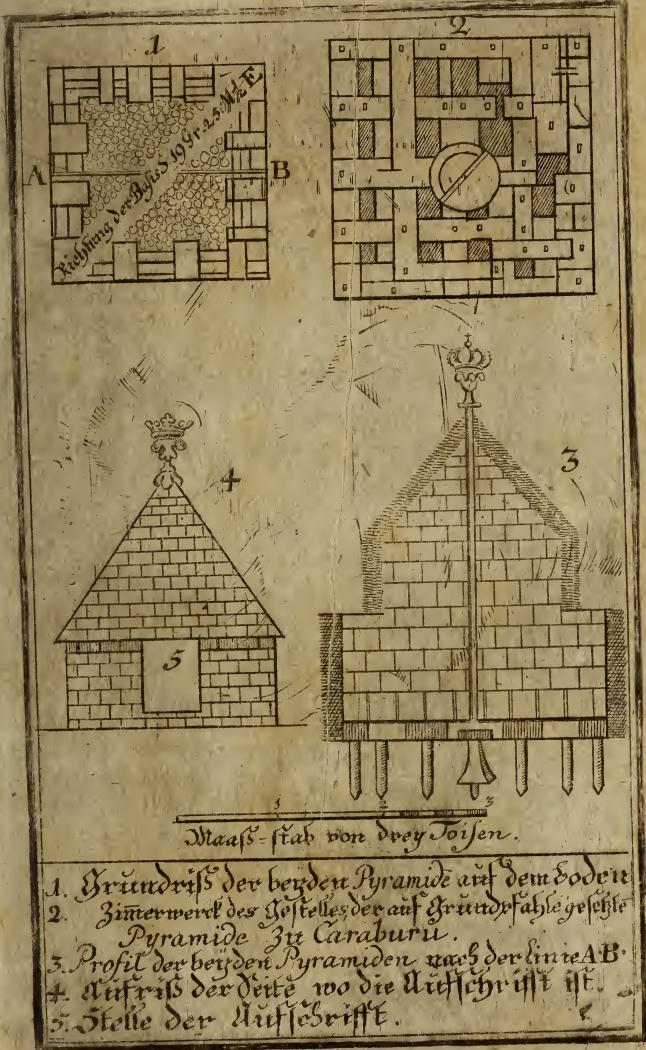 1
2
A
Richtung der Basis S 19 Gr. 25. M ½ E
B
4
3
5
1 2 3
Maaß=stab von drey Toisen.
1. Grundriß der beyden Pyramide auf dem boden
2. Zimerwerck des Gestelles der auf Grundpfahle gesetzte
Pyramide zu Caraburu.
3. Profil der beyden Pyramiden nach der linie AB.
4. Aufriß der Seite wo die Aufschrifft ist.
5. Stelle der Aufschrifft.